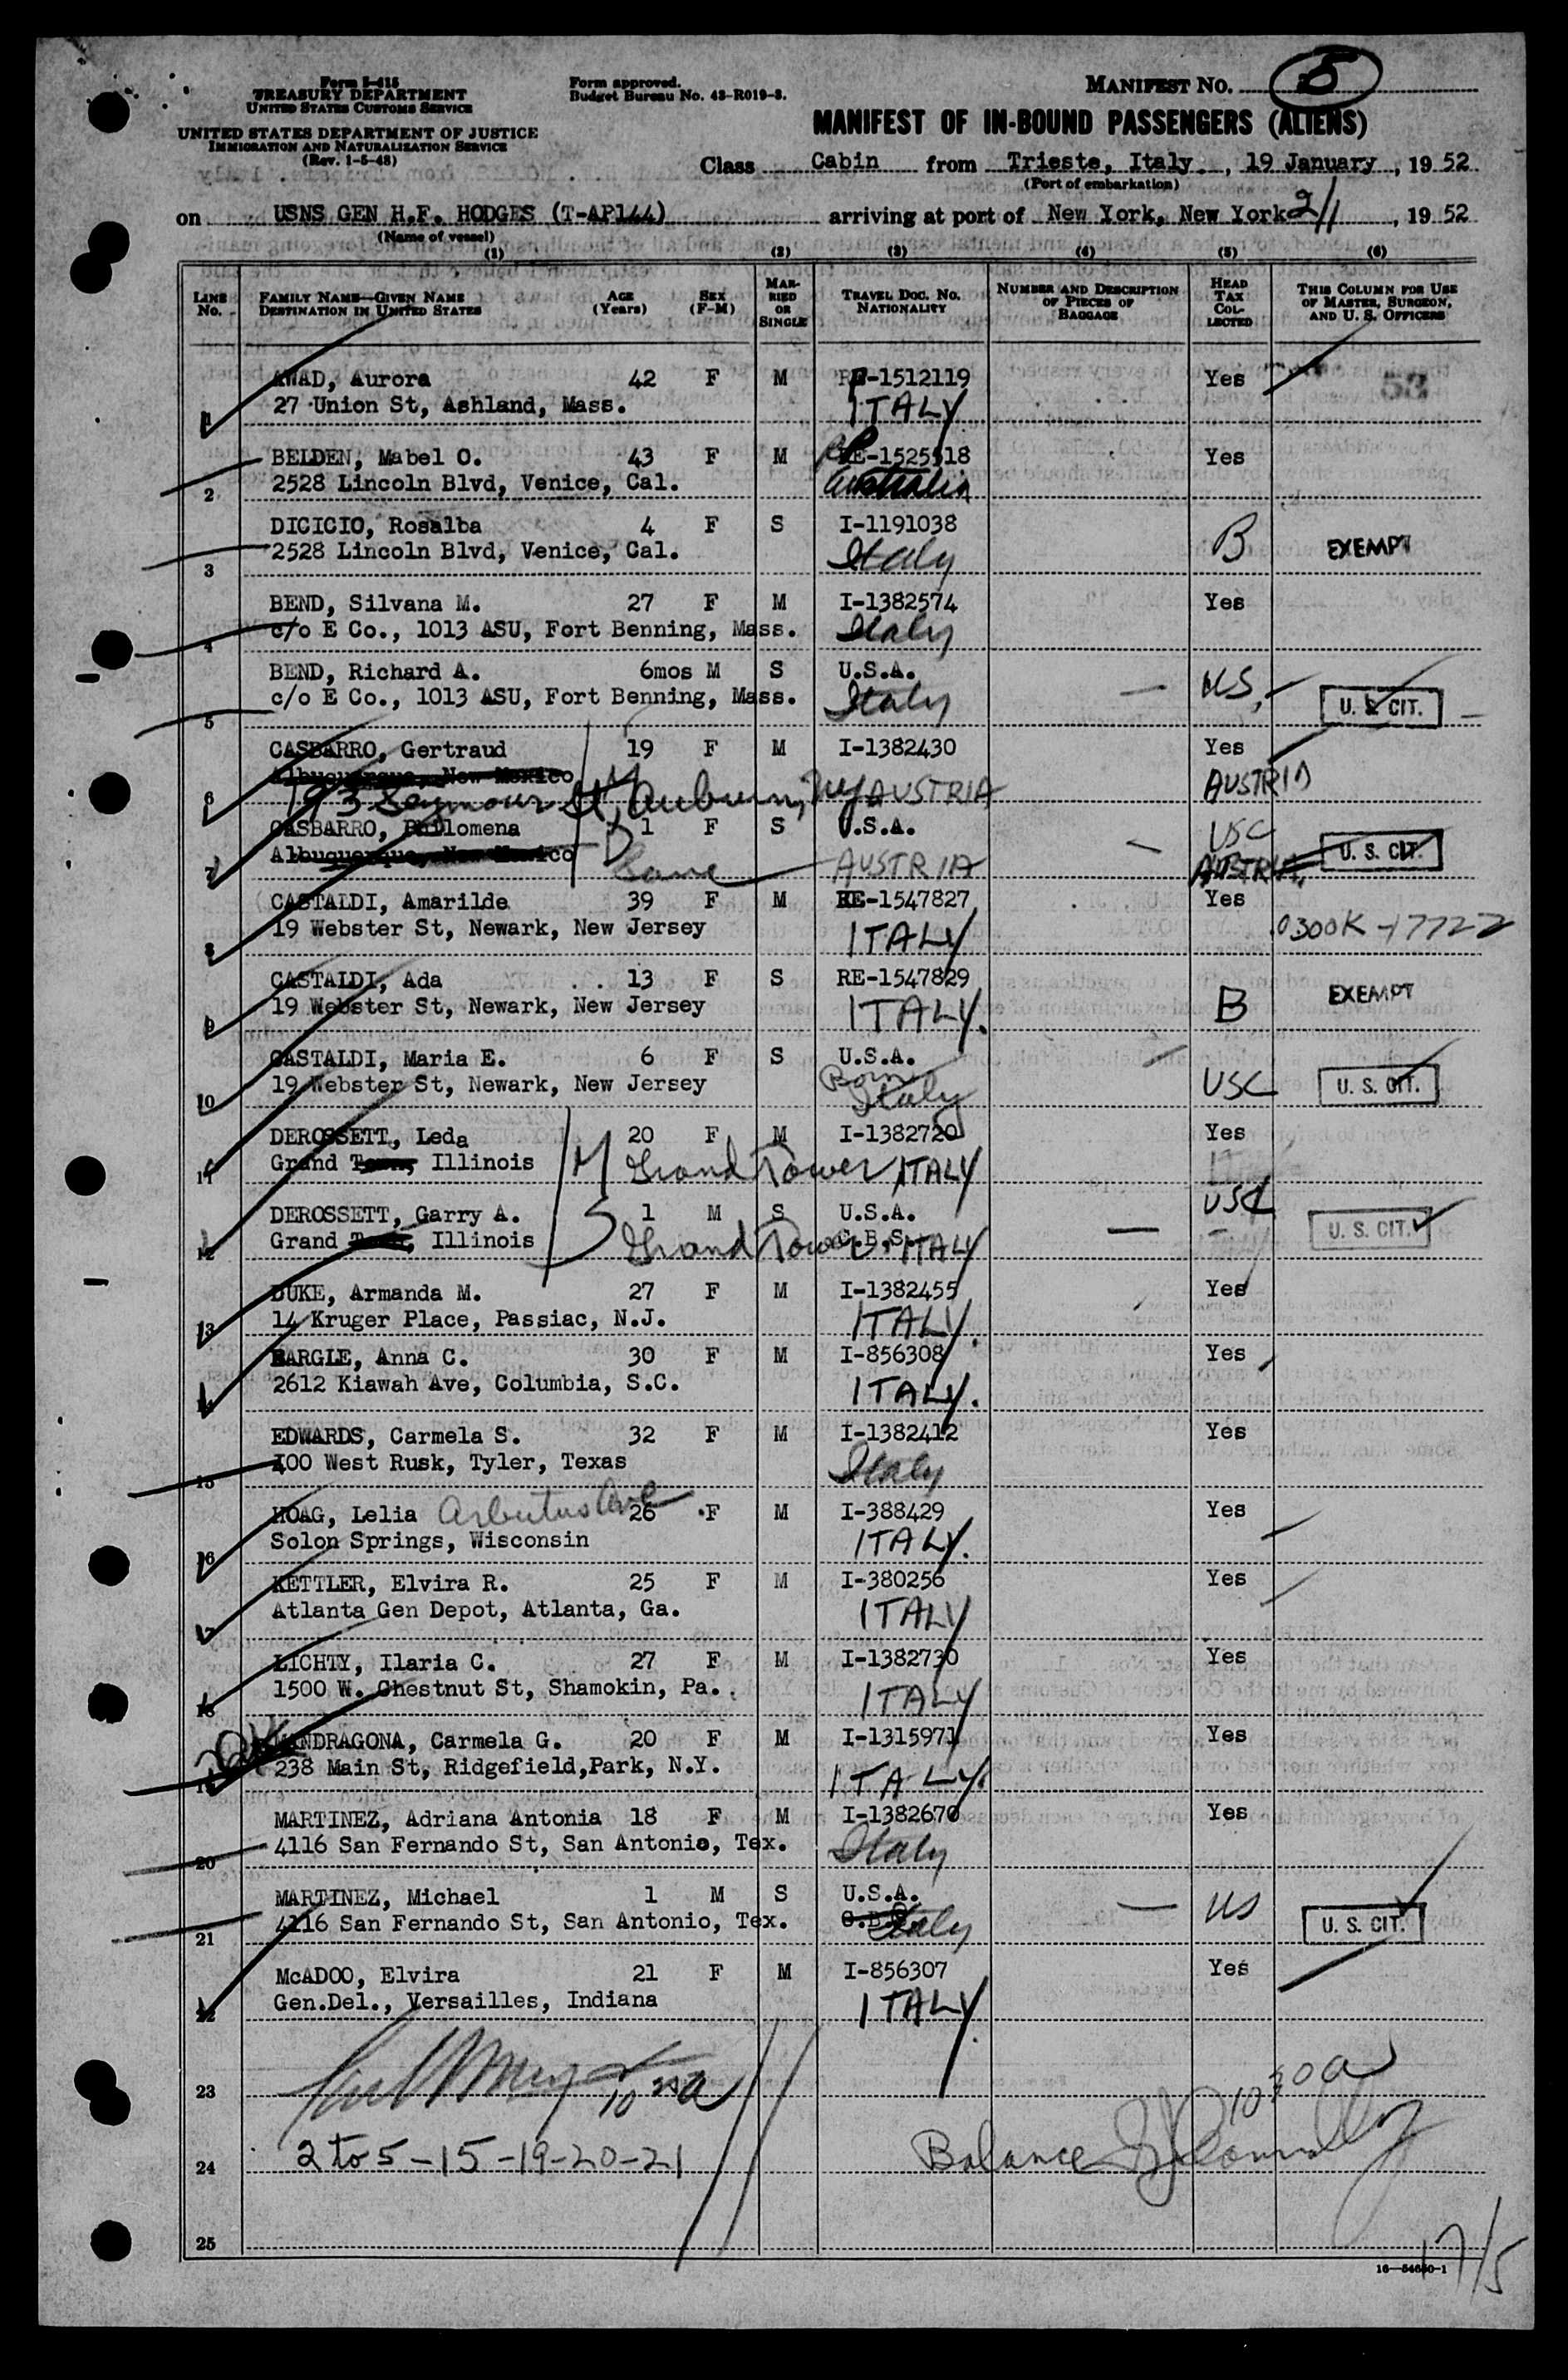 Form I-415
TREASURY DEPARTMENT
UNITED STATES CUSTOMS SERVICE
UNITED STATES DEPARTMENT OF JUSTICE
IMMIGRATION AND NATURALIZATION SERVICE
(Rev. 1-5-48)
Form approved.
Budget Bureau No. 43-R019-3.
MANIFEST NO. 5
MANIFEST OF IN-BOUND PASSENGERS (ALIENS)
Class Cabin from Trieste, Italy., 19 January, 19 52
(Port of embarkation)
on USNS GEN H.F. HODGES (T-AP144) arriving at port of New York, New York 2/1, 19 52
(Name of vessel)
(1) (2) (3) (4) (5) (6)
LINE NO.
FAMILY NAME—GIVEN NAME
DESTINATION IN UNITED STATES
AGE (Years)
SEX (F-M)
MARRIED OR SINGLE
TRAVEL DOC. NO.
NATIONALITY
NUMBER AND DESCRIPTION OF PIECES OF BAGGAGE
HEAD TAX COLLECTED
THIS COLUMN FOR USE OF MASTER, SURGEON, AND U. S. OFFICERS
AWAD, Aurora 42 F M -1512119 Yes 53
1 27 Union St, Ashland, Mass. ITALY
BELDEN, Mabel O. 43 F M -1525518 Yes
2 2528 Lincoln Blvd, Venice, Cal. Australia
DICICIO, Rosalba 4 F S I-1191038 B EXEMPT
3 2528 Lincoln Blvd, Venice, Cal. Italy
BEND, Silvana M. 27 F M I-1382574 Yes
4 c/o E Co., 1013 ASU, Fort Benning, Mass. Italy
BEND, Richard A. 6mos M S U.S.A. US
5 c/o E Co., 1013 ASU, Fort Benning, Mass. Italy U. S. CIT.
CASBARRO, Gertraud 19 F M I-1382430 Yes
Albuquerque, New Mexico M AUSTRIA
6 193 Seymour St, Auburn, NY AUSTRIA
CASBARRO, Philomena 1 F S U.S.A. USC
7 Albuquerque, New Mexico D Same AUSTRIA AUSTRIA U. S. CIT.
CASTALDI, Amarilde 39 F M RE-1547827 Yes
8 19 Webster St, Newark, New Jersey ITALY 0300K-17722
CASTALDI, Ada 13 F S RE-1547829 B EXEMPT
9 19 Webster St, Newark, New Jersey ITALY.
CASTALDI, Maria E. 6 F S U.S.A. USC U. S. CIT.
10 19 Webster St, Newark, New Jersey Born Italy
DEROSSETT, Leda 20 F M I-1382720 Yes
11 Grand Town, Illinois M Grand Tower ITALY
DEROSSETT, Garry A. 1 M S U.S.A. USC
12 Grand Town, Illinois S Grand Tower. ITALY U. S. CIT.
DUKE, Armanda M. 27 F M I-1382455 Yes
13 14 Kruger Place, Passiac, N.J. ITALY.
EARGLE, Anna C. 30 F M I-856308 Yes
14 2612 Kiawah Ave, Columbia, S.C. ITALY.
EDWARDS, Carmela S. 32 F M I-1382412 Yes
15 100 West Rusk, Tyler, Texas Italy
HOAG, Lelia Arbutus Ave 26 F M I-388429 Yes
16 Solon Springs, Wisconsin ITALY.
KETTLER, Elvira R. 25 F M I-380256 Yes
17 Atlanta Gen Depot, Atlanta, Ga. ITALY
LICHTY, Ilaria C. 27 F M I-1382730 Yes
18 1500 W. Chestnut St, Shamokin, Pa. ITALY
MANDRAGONA, Carmela G. 20 F M I-1315971 Yes
19 238 Main St, Ridgefield,Park, N.Y. ITALY.
MARTINEZ, Adriana Antonia 18 F M I-1382670 Yes
20 4116 San Fernando St, San Antonio, Tex. Italy
MARTINEZ, Michael 1 M S U.S.A. US
21 4116 San Fernando St, San Antonio, Tex. Italy U. S. CIT.
McADOO, Elvira 21 F M I-856307 Yes
22 Gen.Del., Versailles, Indiana ITALY.
23 1030a
24 2 to 5-15-19-20-21 Balance
25
17/5